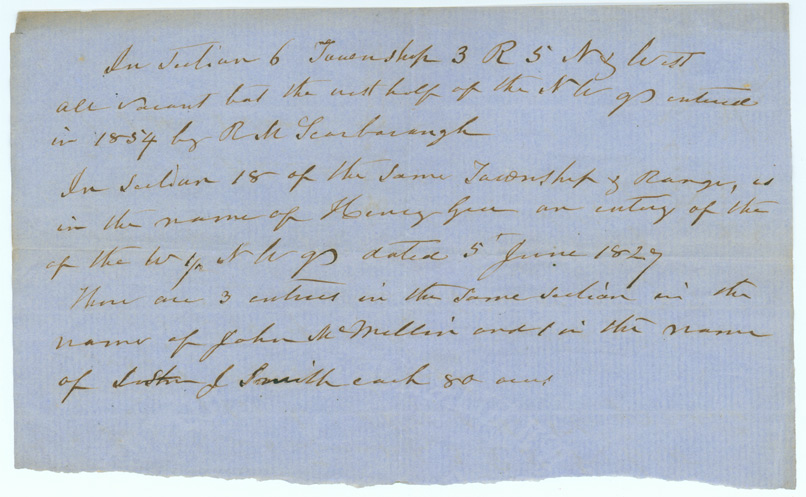 In Section 6 Township 3 R 5 N & West
all vacant but the west half of the N W qr entered
in 1854 by R M Scarborough
In Section 18 of the same Township & Range, is
in the name of Henry Gee an entry of the
of the W ½ N W qr dated 5 June 1827
There are 3 entries in the same section in the
name of John McMillin and 1 in the name
of J Smith each 80 acres